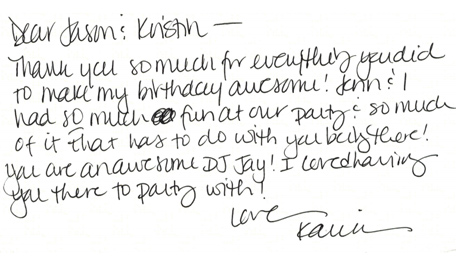 Dear Jason & Kristin —
Thank you so much for everything you did
to make my birthday awesome! Jenn & I
had so much fun at our party & so much
of it that has to do with you being there!
You are an awesome DJ Jay! I loved having
you there to party with!
Love